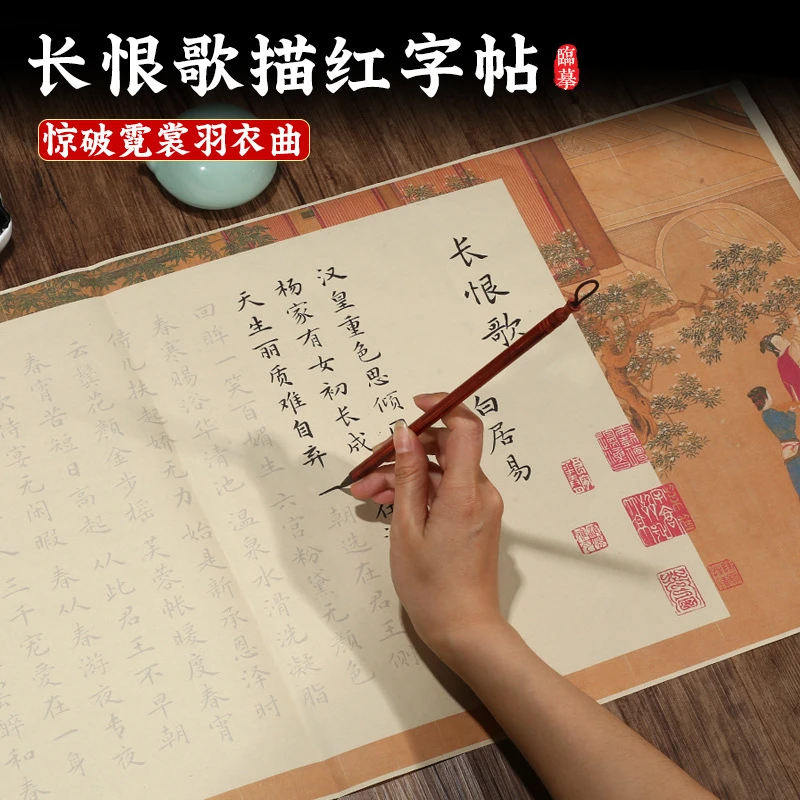 长恨歌描红字帖
臨摹
惊破霓裳羽衣曲
长恨歌
白居易
汉皇重色思倾
杨家有女初长成
天生丽质难自弃 一朝选在君王侧
回眸一笑百媚生 六宫粉黛无颜色
春寒赐浴华清池 温泉水滑洗凝脂
侍儿扶起娇无力 始是新承恩泽时
云鬓花颜金步摇 芙蓉帐暖度春宵
春宵苦短日高起 从此君王不早朝
欢侍宴无闲暇 春从春游夜专夜
人 三千宠爱在一身
醉和春